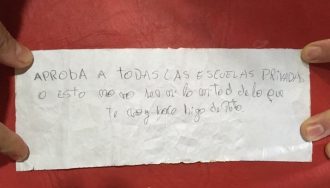 APROBA A TODAS LAS ESCUELAS PRIVADAS
o esto no va ser ni la mitad de lo que
te voy hacer hijo de puta